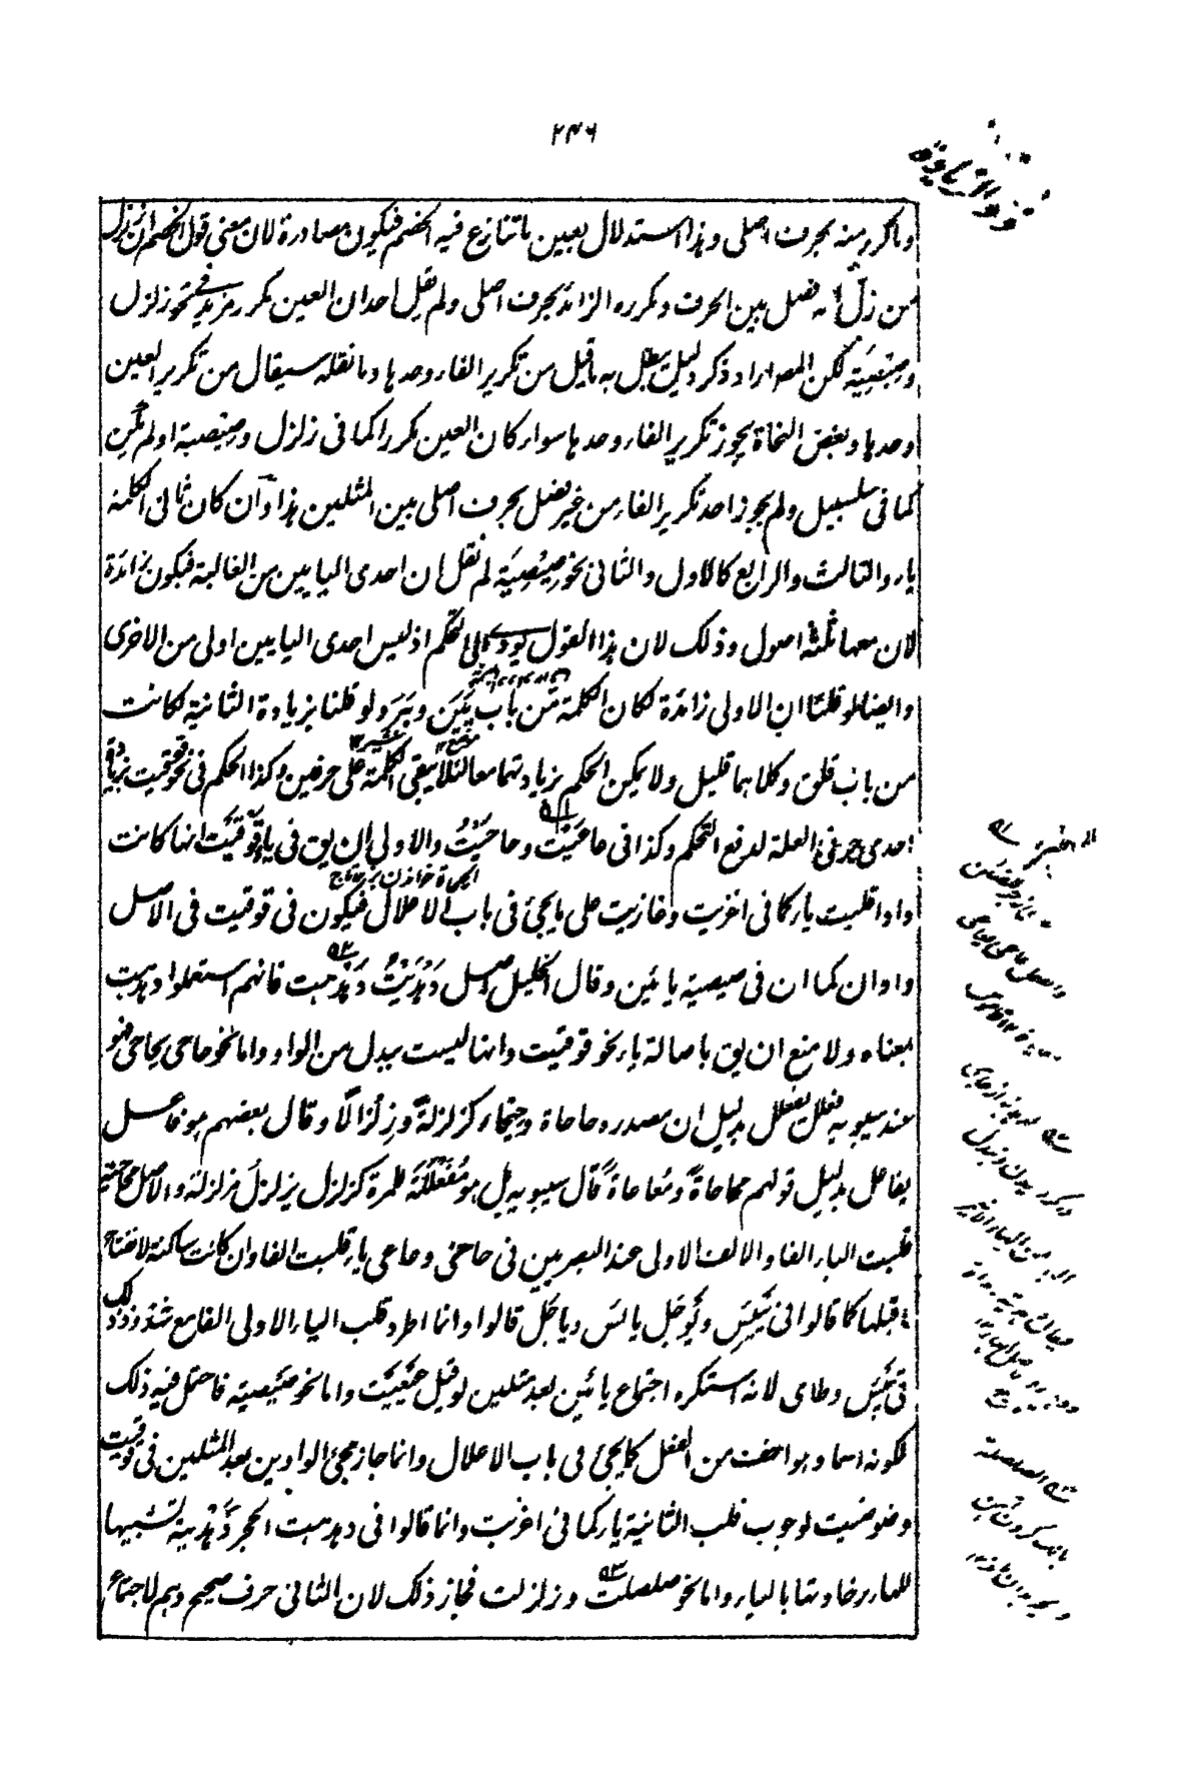 ۲۴۶
ذو الزيادة
وما كرر منه بحرف اصلى وهذا استدلال بعين ما تنازع فيه الخصم فيكون مصادرة لان معنى قول الخصم ان زلزل
من زلّ انه فصل بين الحرف ومكرره الزائد بحرف اصلى ولم يقل احد ان العين مكرر مزيد فى نحو زلزل
وصيصية لكن المصـ اراد ذكر دليل يبطل به ما قيل من تكرير الفاء وحدها وما نقله سيقال من تكرير العين
وحدها وبعض النحاة يجوز تكرير الفاء وحدها سواء كان العين مكررا كما فى زلزل وصيصية او لم يكن
كما فى سلسبيل ولم يجوز احد تكرير الفاء من غير فصل بحرف اصلى بين المثلين هذا وآن كان ثانى الكلمة
ياء والثالث والرابع كالاول والثانى نحو صيصية لم نقل ان احدى اليايين من الغالبة فيكون زائدة
لان معها ثلثة اصول وذلك لان هذا القول يودى الى التحكم اذ ليس احدى اليايين اولى من الاخرى
وايضا لو قلنا ان الاولى زائدة لكان الكلمة من باب يَيَن وبَبَر ولو قلنا بزيادة الثانية لكانت
من باب قلق وكلاهما قليل ولا يمكن الحكم بزيادتهما معا لئلا يبقى الكلمة على حرفين وكذا الحكم فى نحو قوقيت بزيادة
احدى حرفى العلة لدفع التحكم وكذا فى عاعيت وحاحيت والاولى ان يق فى ياء قوقيت انها كانت
واوا قلبت ياء كما فى اغزيت وغازيت على ما يجئ فى باب الاعلال فيكون فى قوقيت فى الاصل
واوان كما ان فى صيصية يائين وقال الخليل اصل دهديت دهدهت فانهم استعملوا دهدهت
بمعناه ولا منع ان يق باصالة ياء نحو قوقيت وانها ليست ببدل من الواو واما نحو حاحى يحاحى فهو
عند سيبويه فعلل يفعلل بدليل ان مصدره حاحاة وحيحاء كزلزلة وزلزالا وقال بعضهم هو فاعل
يفاعل بدليل قولهم محاحاة ومعاعاة قال سيبويه بل هو مفعللة للمرة كزلزل يزلزل مزلزلة والاصل محاحية
قلبت الياء الفا والالف الاولى عند البصريين فى حاحى وعاعى ياء قلبت الفا وان كانت ساكنة لانفتاح
ما قبلها كما قالوا فى ييئس ويوجل يائس وياجل قالوا وانما اطرد قلب الياء الاولى الفا مع شذوذ ذلك
فى ييئس وطاى لانه استكره اجتماع يائين بعد مثلين لو قيل حيحيت واما نحو صيصية فاحتمل فيه ذلك
لكونه اسما وهو اخف من الفعل كما يجئ فى باب الاعلال وانما جاز مجئ الواوين بعد المثلين فى قوقيت
وضوضيت لوجوب قلب الثانية ياء كما فى اغزيت وانما قالوا فى دهدهت الحجر دهدية تشبيها
للهاء لرخاوتها بالياء واما نحو صلصلت وزلزلت فجاز ذلك لان الثانى حرف صحيح وهم لاجتماع